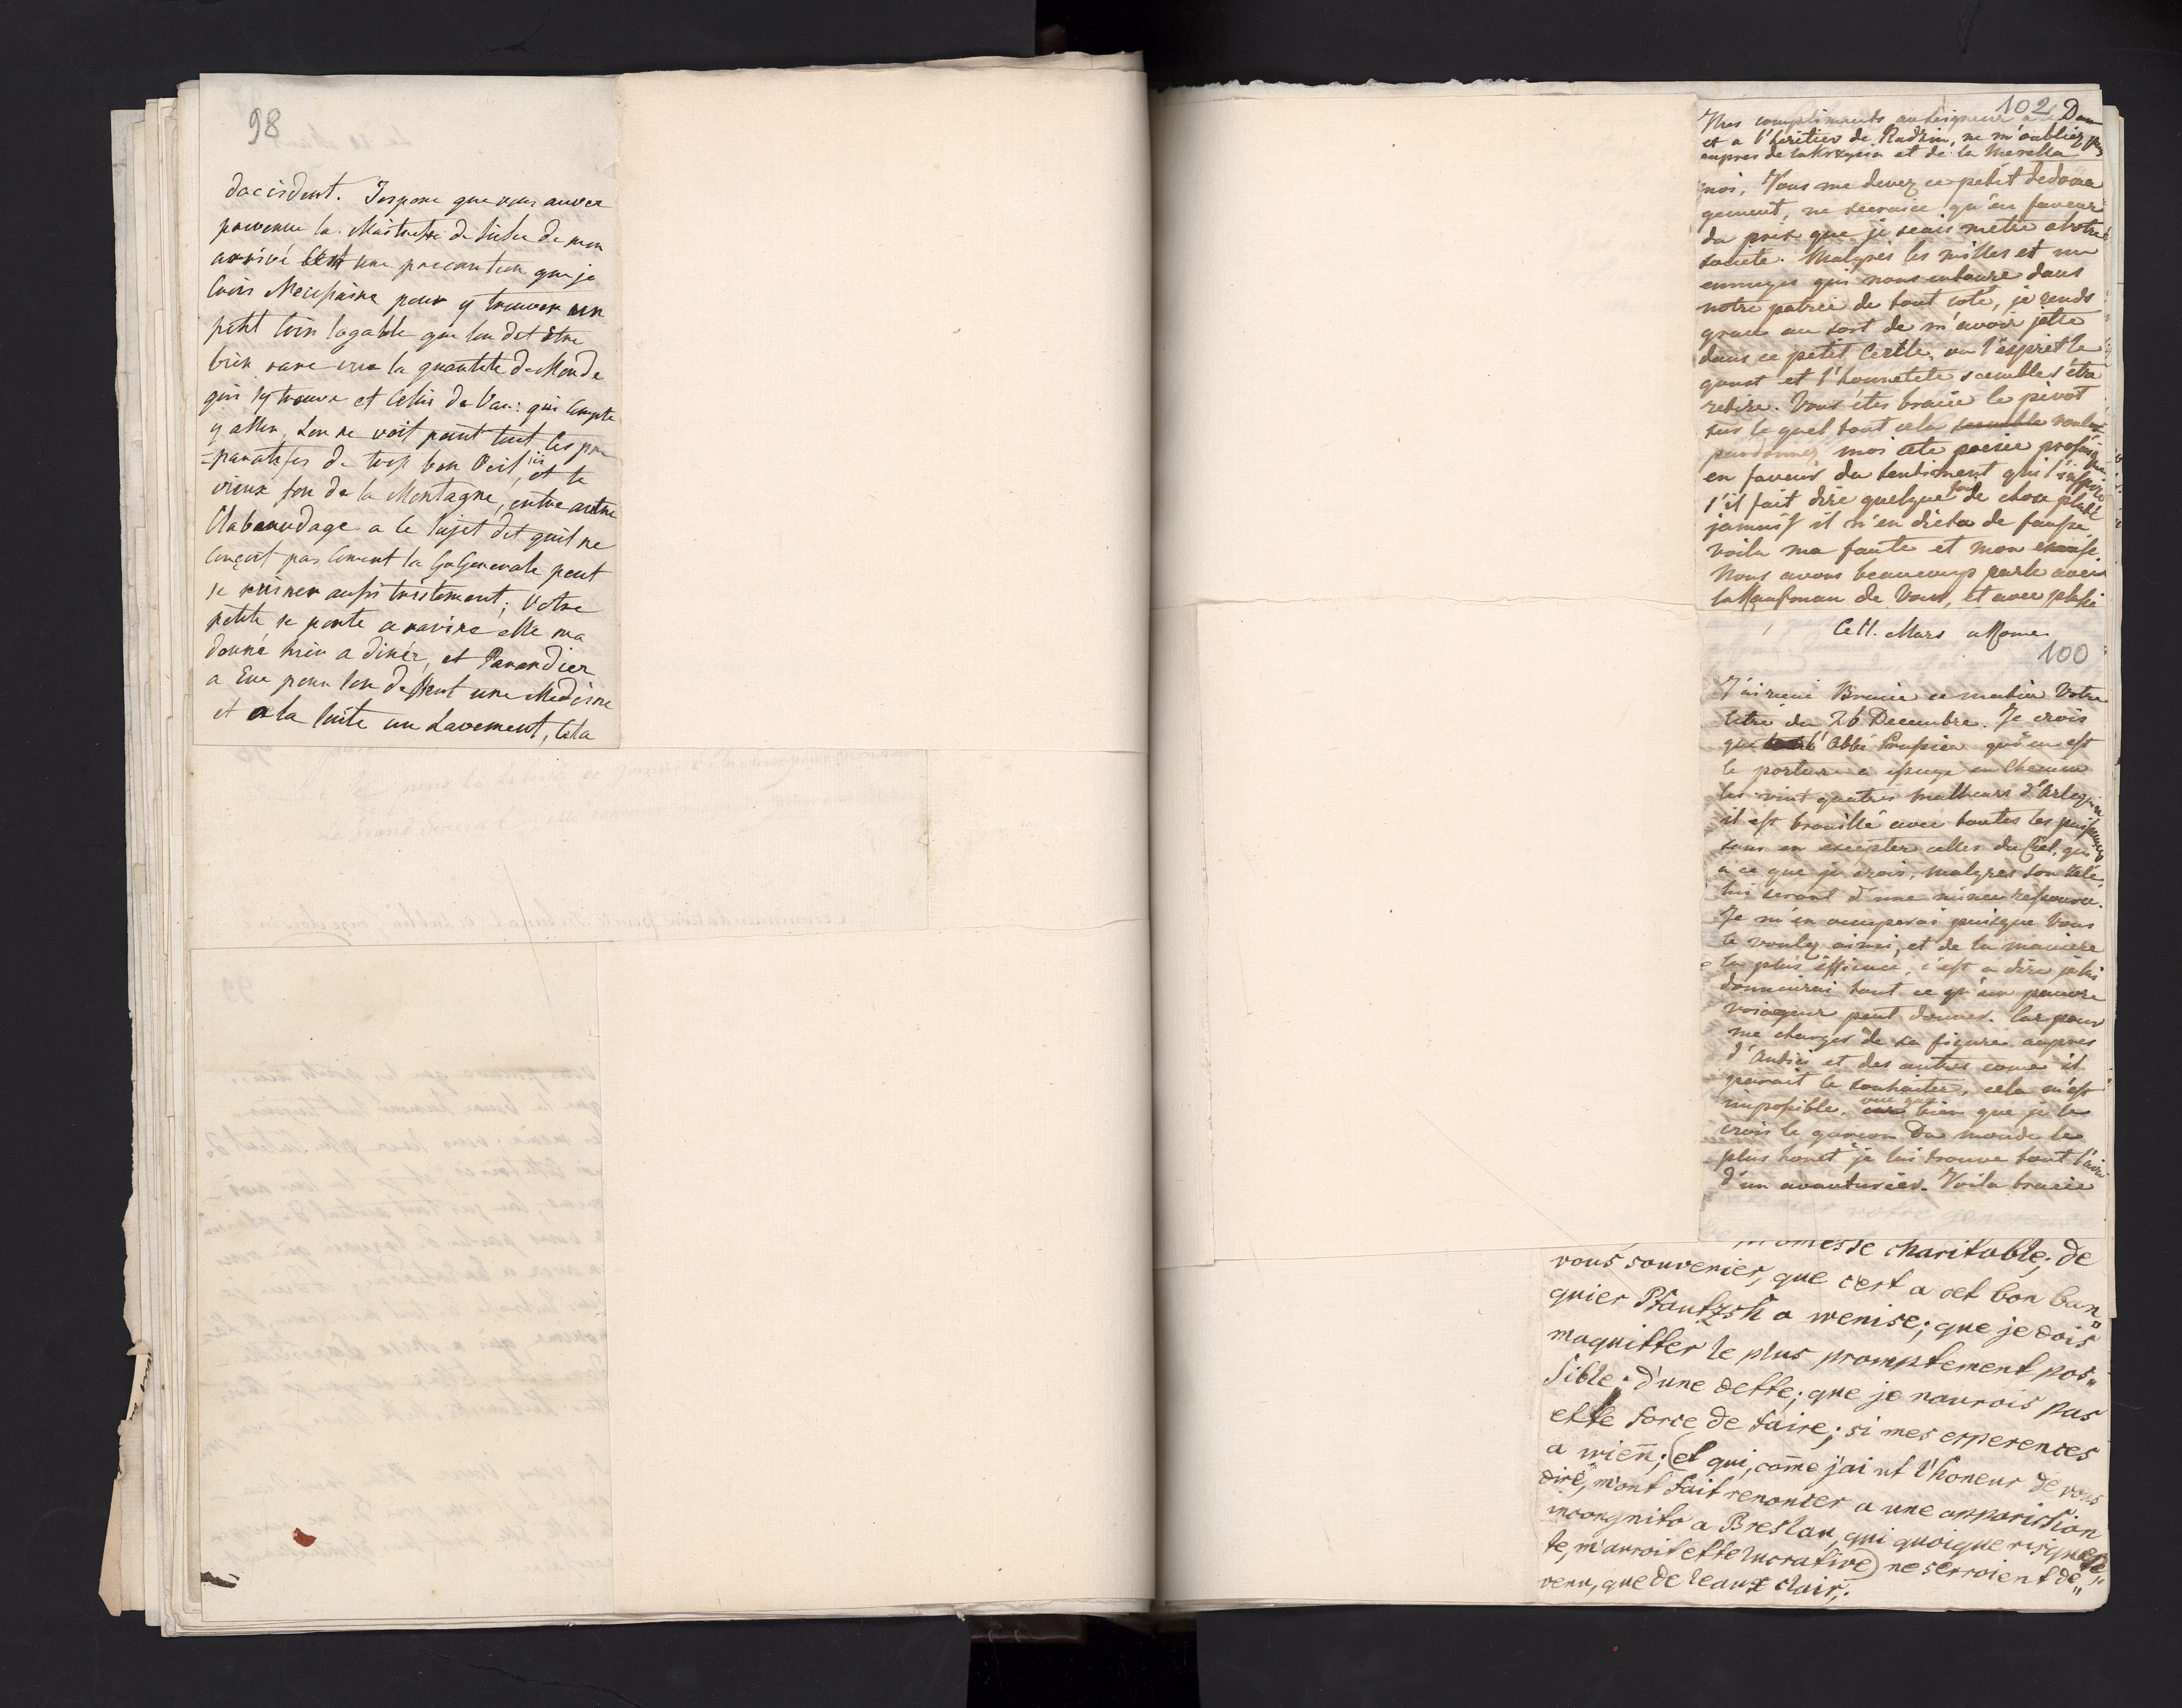 98
dacisdent. Jespere que vous auvez
prevenue la Maitresse de
arrivé c'est une precaution que je
Crois Necessaire pour y trouver un
petit Coin logable que lon dit Etre
bien rare vue la quantité de Monde
qui sy trouve et Celui de qui Compte
y aller, Lon ne voit point tout Ces pre
=paratifes de trop bon Oeil ici, et le
vieux fou de la Montagne, entre autre
Clabaudage a ce sujet dit quil ne
Conçoit pas Coment la Generale peut
se aussi tristement; Votre
petite se porte a ravire elle ma
donné hier a diner, et Parandier
a Eue pour son dessert une Medecine
et a la suite un Lavement, Cela
102
Mes compliments au seigneur Dam
et a l'héritier de Radzin, ne m'oubliez pas
aupres de la et de la Merella
moi, Vous me devez ce petit dedoma
gement, ne seroaice qu'en faveur
du prix que je scais metre a votre
societe. Malgrés les milles et un
ennuyes qui nous entoure dans
notre patrie de tout coté, je rends
grace au sort de m'avoir jetté
dans ce petit Cercle, ou l'esprit le
goust et l'honnetete scemble s'étre
retiré. Vous étes bracie le pivot
sur le quel tout cela roule
pardonnez moi cete poesie
en faveur du sentiment qui l'inspire
s'il fait dire quelque fois de chose plate
jamais il n'en dicta de fausse
voila ma faute et mon excuse.
Nous avons beaucoup parlé avec
la Kaufman de Vous, et avec plesi
Ce 11. Mars a Rome
100
J'ai recue Bracie ce matin Votre
letre du 26 Decembre. Je crois
que l'Abbé Prussien qu'en est
le porteur a essuye en Chemin
les vint quatres malheurs d'Arlequin
il est brouillé avec toutes les puissances
sans en excepter celles du Ciel, qui
a ce que je crois, malgres son zele,
lui seront d'une mince ressource.
Je m'en occuperai puisque Vous
le voulez ainsi, et de la maniere
la plus éfficace, c'est a dire je lui
donnerai tout ce qu'un pauvre
voiageur peut donner. Car pour
me charger de sa figure aupres
d'Antici et des autres come il
parait le souhaiter, cela m'est
impossible. vue que bien que je le
crois le garcon du monde le
plus honet je lui trouve tout l'air
d'un avanturier. Voila bracie
promesse charitable; de
vous souvenier, que c'est a cet bon ban"
quier Pfautzsh a wenise; que je dois
maquitter le plus promptement pos"
sible; d'une dette; que je naurois pas
ette force de faire; si mes esperences
a wien̄; (et qui, com̄e j'ai ut l'honeur de vous
dire, m'ont fait renoncer a une apparission
incongnito a Breslau, qui quoique risque
te, m'auroit ette lucrative) ne serroient dé"
venu, que de leaux clair;